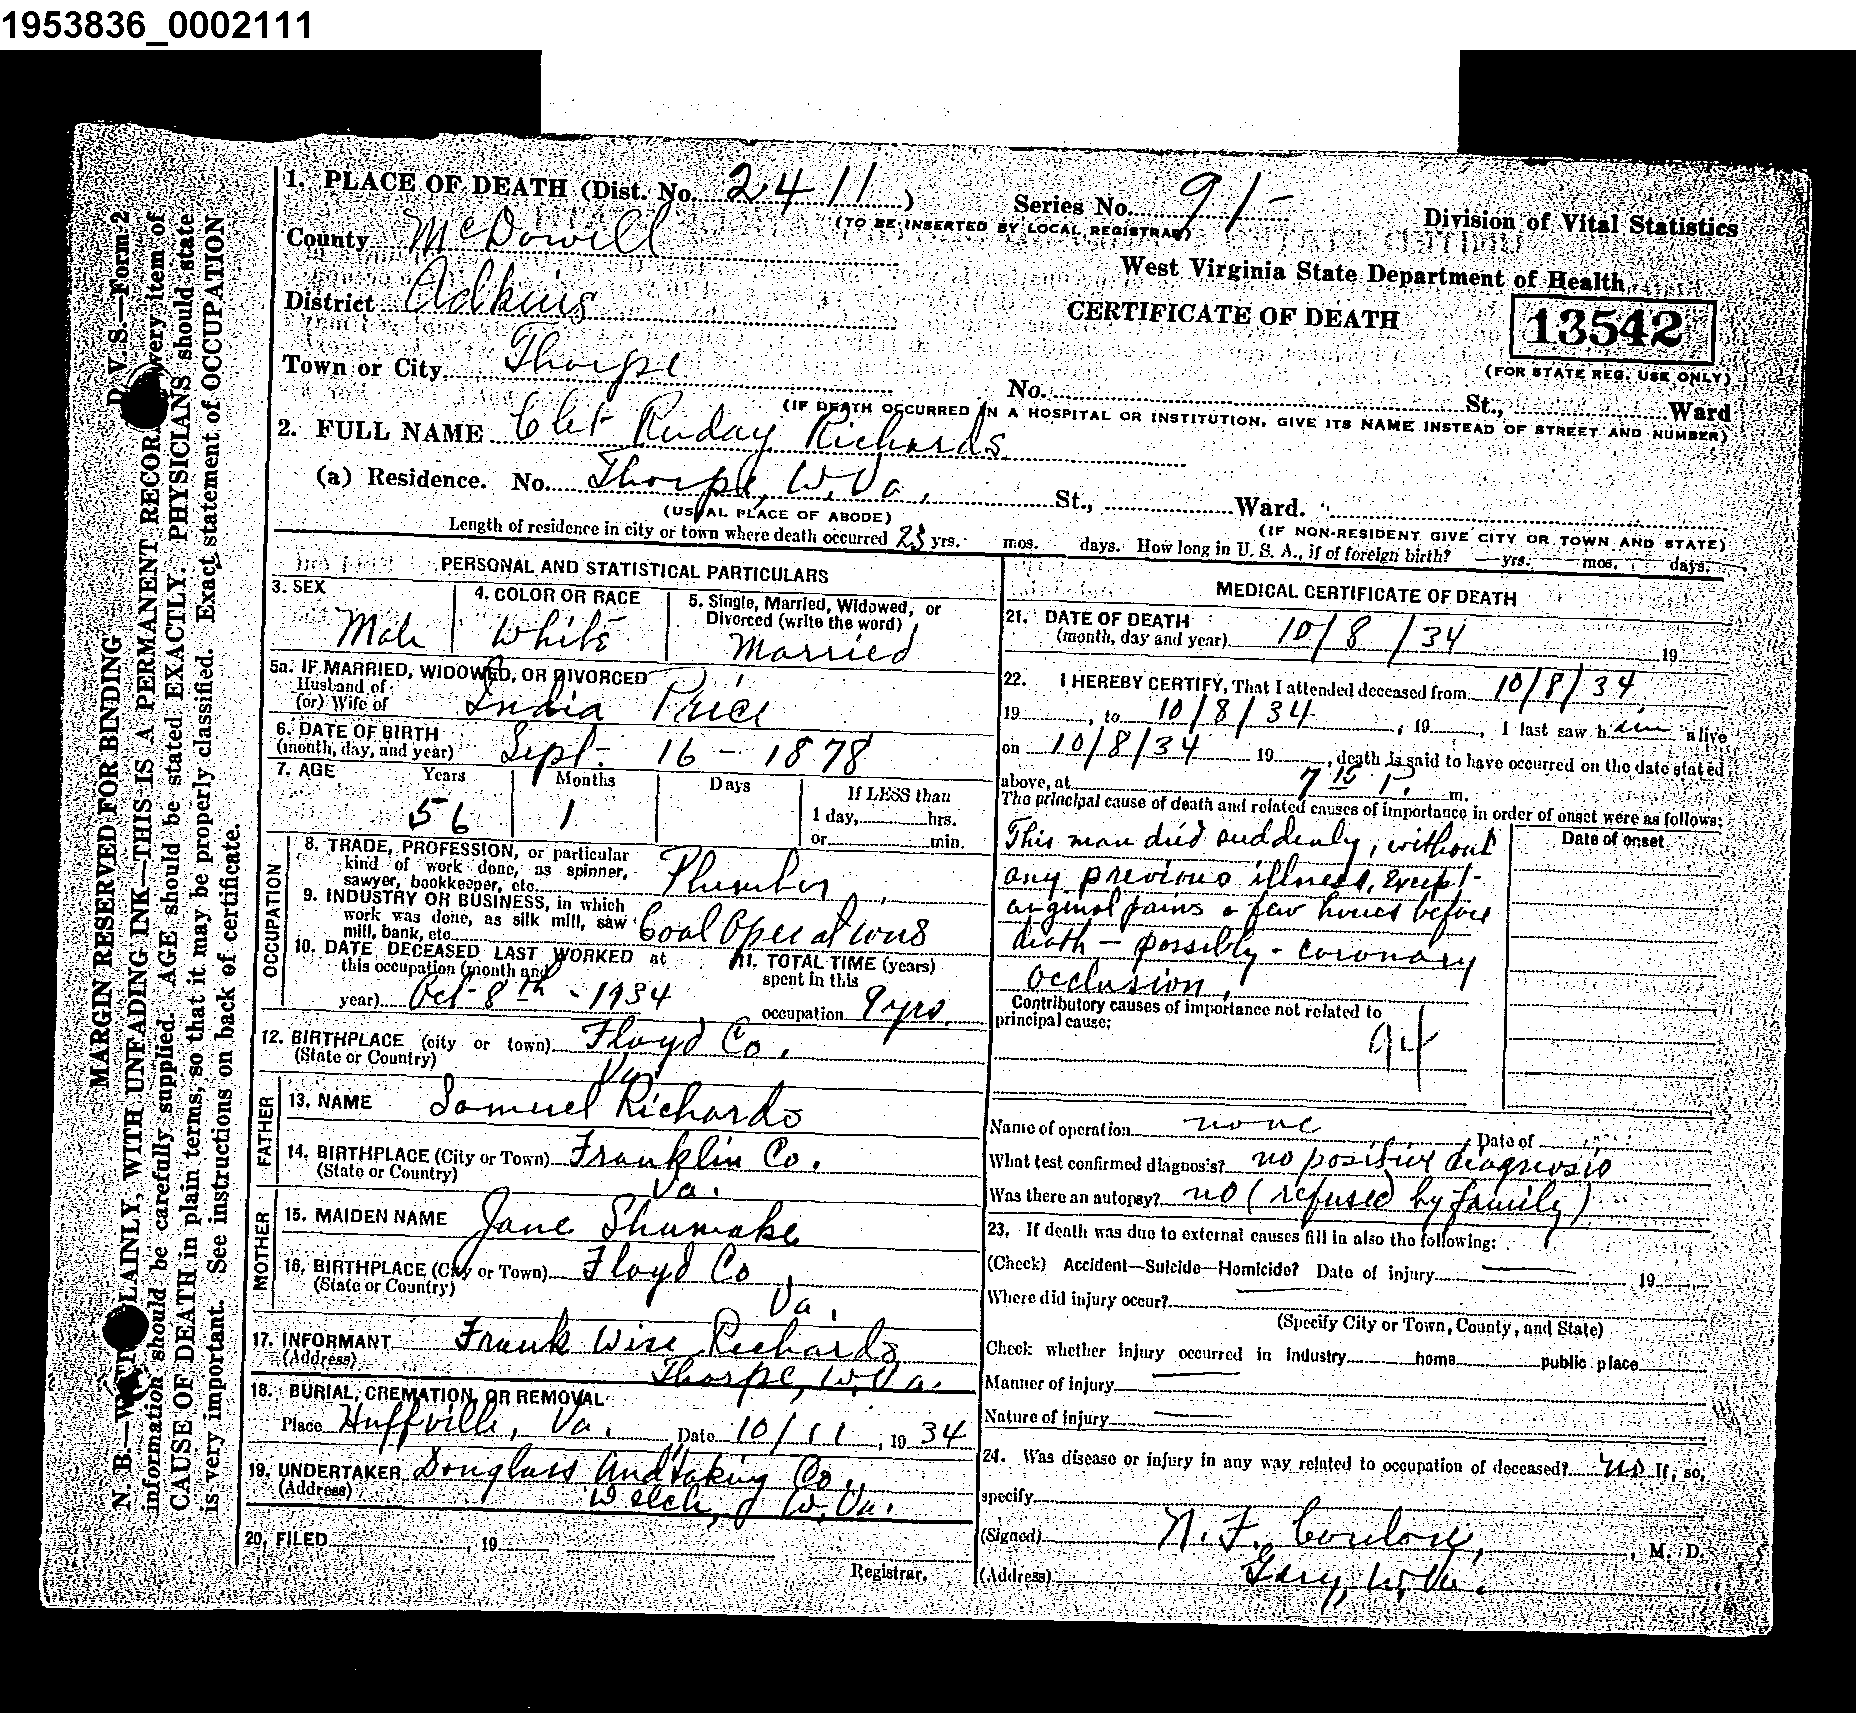 1953836_0002111
1. PLACE OF DEATH (Dist. No. 2411)
Series No. 91-
(TO BE INSERTED BY LOCAL REGISTRAR)
Division of Vital Statistics
County McDowell
West Virginia State Department of Health
District Adkins
CERTIFICATE OF DEATH
13542
(FOR STATE REG. USE ONLY)
Town or City Thorpe
No. St., Ward
(IF DEATH OCCURRED IN A HOSPITAL OR INSTITUTION, GIVE ITS NAME INSTEAD OF STREET AND NUMBER)
2. FULL NAME Richards
(a) Residence. No. Thorpe, W. Va. St., Ward.
(USUAL PLACE OF ABODE)
(IF NON-RESIDENT GIVE CITY OR TOWN AND STATE)
Length of residence in city or town where death occurred 23 yrs. mos. days. How long in U. S. A., if of foreign birth? yrs. mos. days.
PERSONAL AND STATISTICAL PARTICULARS
3. SEX
Male
4. COLOR OR RACE
White
5. Single, Married, Widowed, or
Divorced (write the word)
Married
5a. IF MARRIED, WIDOWED, OR DIVORCED
Husband of
(or) Wife of India Price
6. DATE OF BIRTH
(month, day, and year) Sept. 16 - 1878
7. AGE Years Months Days If LESS than
56 1 1 day, hrs.
or min.
OCCUPATION
8. TRADE, PROFESSION, or particular
kind of work done, as spinner,
sawyer, bookkeeper, etc. Plumber
9. INDUSTRY OR BUSINESS, in which
work was done, as silk mill, saw
mill, bank, etc. Coal Operations
10. DATE DECEASED LAST WORKED at
this occupation (month and
year) Oct - 8th - 1934
11. TOTAL TIME (years)
spent in this
occupation 9 yrs.
12. BIRTHPLACE (city or town) Floyd Co.
(State or Country) Va.
FATHER
13. NAME Samuel Richards
14. BIRTHPLACE (City or Town) Franklin Co.
(State or Country) Va.
MOTHER
15. MAIDEN NAME Jane Shumake
16. BIRTHPLACE (City or Town) Floyd Co
(State or Country) Va.
17. INFORMANT Frank Wise Richards
(Address) Thorpe, W. Va.
18. BURIAL, CREMATION, OR REMOVAL
Place Huffville, Va. Date 10/11, 1934
19. UNDERTAKER Douglass Undtaking Co.
(Address) Welch, W. Va.
20. FILED , 19
Registrar.
MEDICAL CERTIFICATE OF DEATH
21. DATE OF DEATH
(month, day and year) 10/8/34 19
22. I HEREBY CERTIFY, That I attended deceased from 10/8/34
19 , to 10/8/34 , 19 , I last saw him alive
on 10/8/34 19 , death is said to have occurred on the date stated
above, at 7 15 P. m.
The principal cause of death and related causes of importance in order of onset were as follows:
Date of onset
This man died suddenly, without
any previous illness, except
anginal pains a few hours before
death - possibly - coronary
occlusion.
Contributory causes of importance not related to
principal cause:
94
Name of operation none Date of
What test confirmed diagnosis? no positive diagnosis
Was there an autopsy? no (refused by family)
23. If death was due to external causes fill in also the following:
(Check) Accident—Suicide—Homicide? Date of injury 19
Where did injury occur?
(Specify City or Town, County, and State)
Check whether injury occurred in industry home public place
Manner of injury
Nature of injury
24. Was disease or injury in any way related to occupation of deceased? no If, so,
specify
(Signed) N. F. , M. D.
(Address) Gary, W. Va.
D. V. S.—Form 2
MARGIN RESERVED FOR BINDING
N. B.— PLAINLY, WITH UNFADING INK—THIS IS A PERMANENT RECORD. Every item of
information should be carefully supplied. AGE should be stated EXACTLY. PHYSICIANS should state
CAUSE OF DEATH in plain terms, so that it may be properly classified. Exact statement of OCCUPATION
is very important. See instructions on back of certificate.